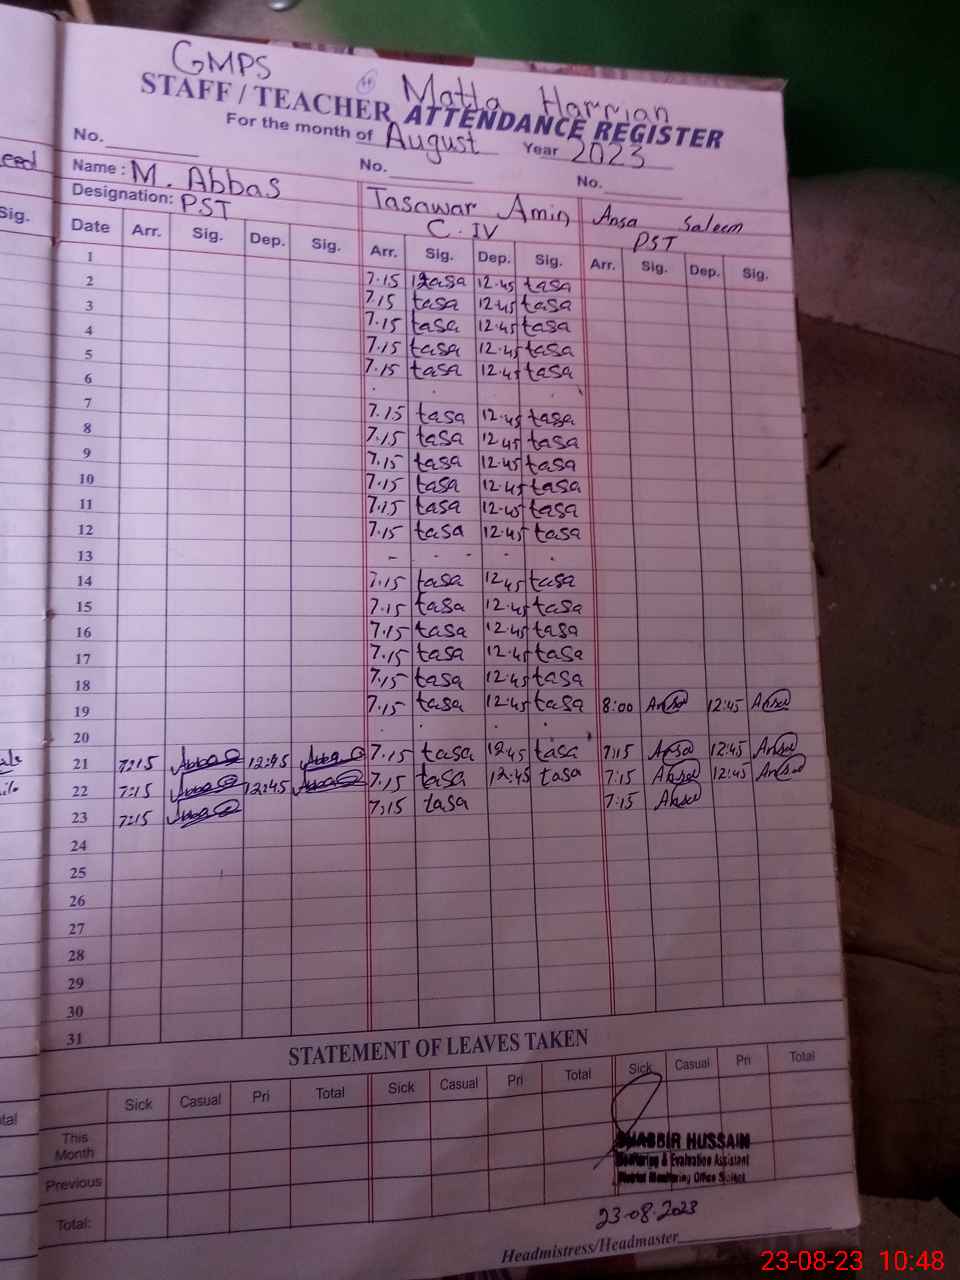 GMPS Matta Harrian
STAFF / TEACHER ATTENDANCE REGISTER
For the month of August Year 2023
No. No. No.
Name : M. Abbas Tasawar Amin Ansa Saleem
Designation: PST C.IV PST
Sig.
Date Arr. Sig. Dep. Sig. Arr. Sig. Dep. Sig. Arr. Sig. Dep. Sig.
1
2 7.15 tasa 12.45 tasa
3 7.15 tasa 12.45 tasa
4 7.15 tasa 12.45 tasa
5 7.15 tasa 12.45 tasa
6 7.15 tasa 12.45 tasa
7 7.15 tasa 12.45 tasa
8 7.15 tasa 12.45 tasa
9 7.15 tasa 12.45 tasa
10 7.15 tasa 12.45 tasa
11 7.15 tasa 12.45 tasa
12 7.15 tasa 12.45 tasa
13 - - - -
14 7.15 tasa 12.45 tasa
15 7.15 tasa 12.45 tasa
16 7.15 tasa 12.45 tasa
17 7.15 tasa 12.45 tasa
18 7.15 tasa 12.45 tasa
19 7.15 tasa 12.45 tasa 8:00 Ansa 12:45 Ansa
20
21 7:15 Abbas 12:45 Abbas 7.15 tasa 12.45 tasa 7:15 Ansa 12:45 Ansa
22 7:15 Abbas 12:45 Abbas 7.15 tasa 12.45 tasa 7:15 Ansa 12:45 Ansa
23 7:15 Abbas 7.15 tasa 7:15 Ansa
24
25
26
27
28
29
30
31
STATEMENT OF LEAVES TAKEN
Sick Casual Pri Total Sick Casual Pri Total Sick Casual Pri Total
This Month
Previous
Total:
SHABBIR HUSSAIN
Monitoring & Evaluation Assistant
District Monitoring Office
23-08-2023
Headmistress/Headmaster
23-08-23 10:48